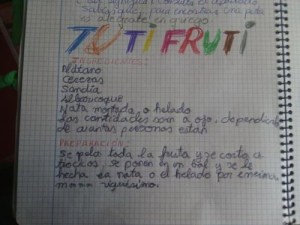 TUTI FRUTI
INGREDIENTES
Plátano
Cerezas
Sandía
Albaricoque
Nata montada o helado
Las cantidades com a ojo, dependiendo
de cuantas personas están
PREPARACIÓN
Se pela toda la fruta y se corta a
trocitos, se ponen en un bol y se le
hecha la nata o el helado por encima,
mmmm riquisimo.